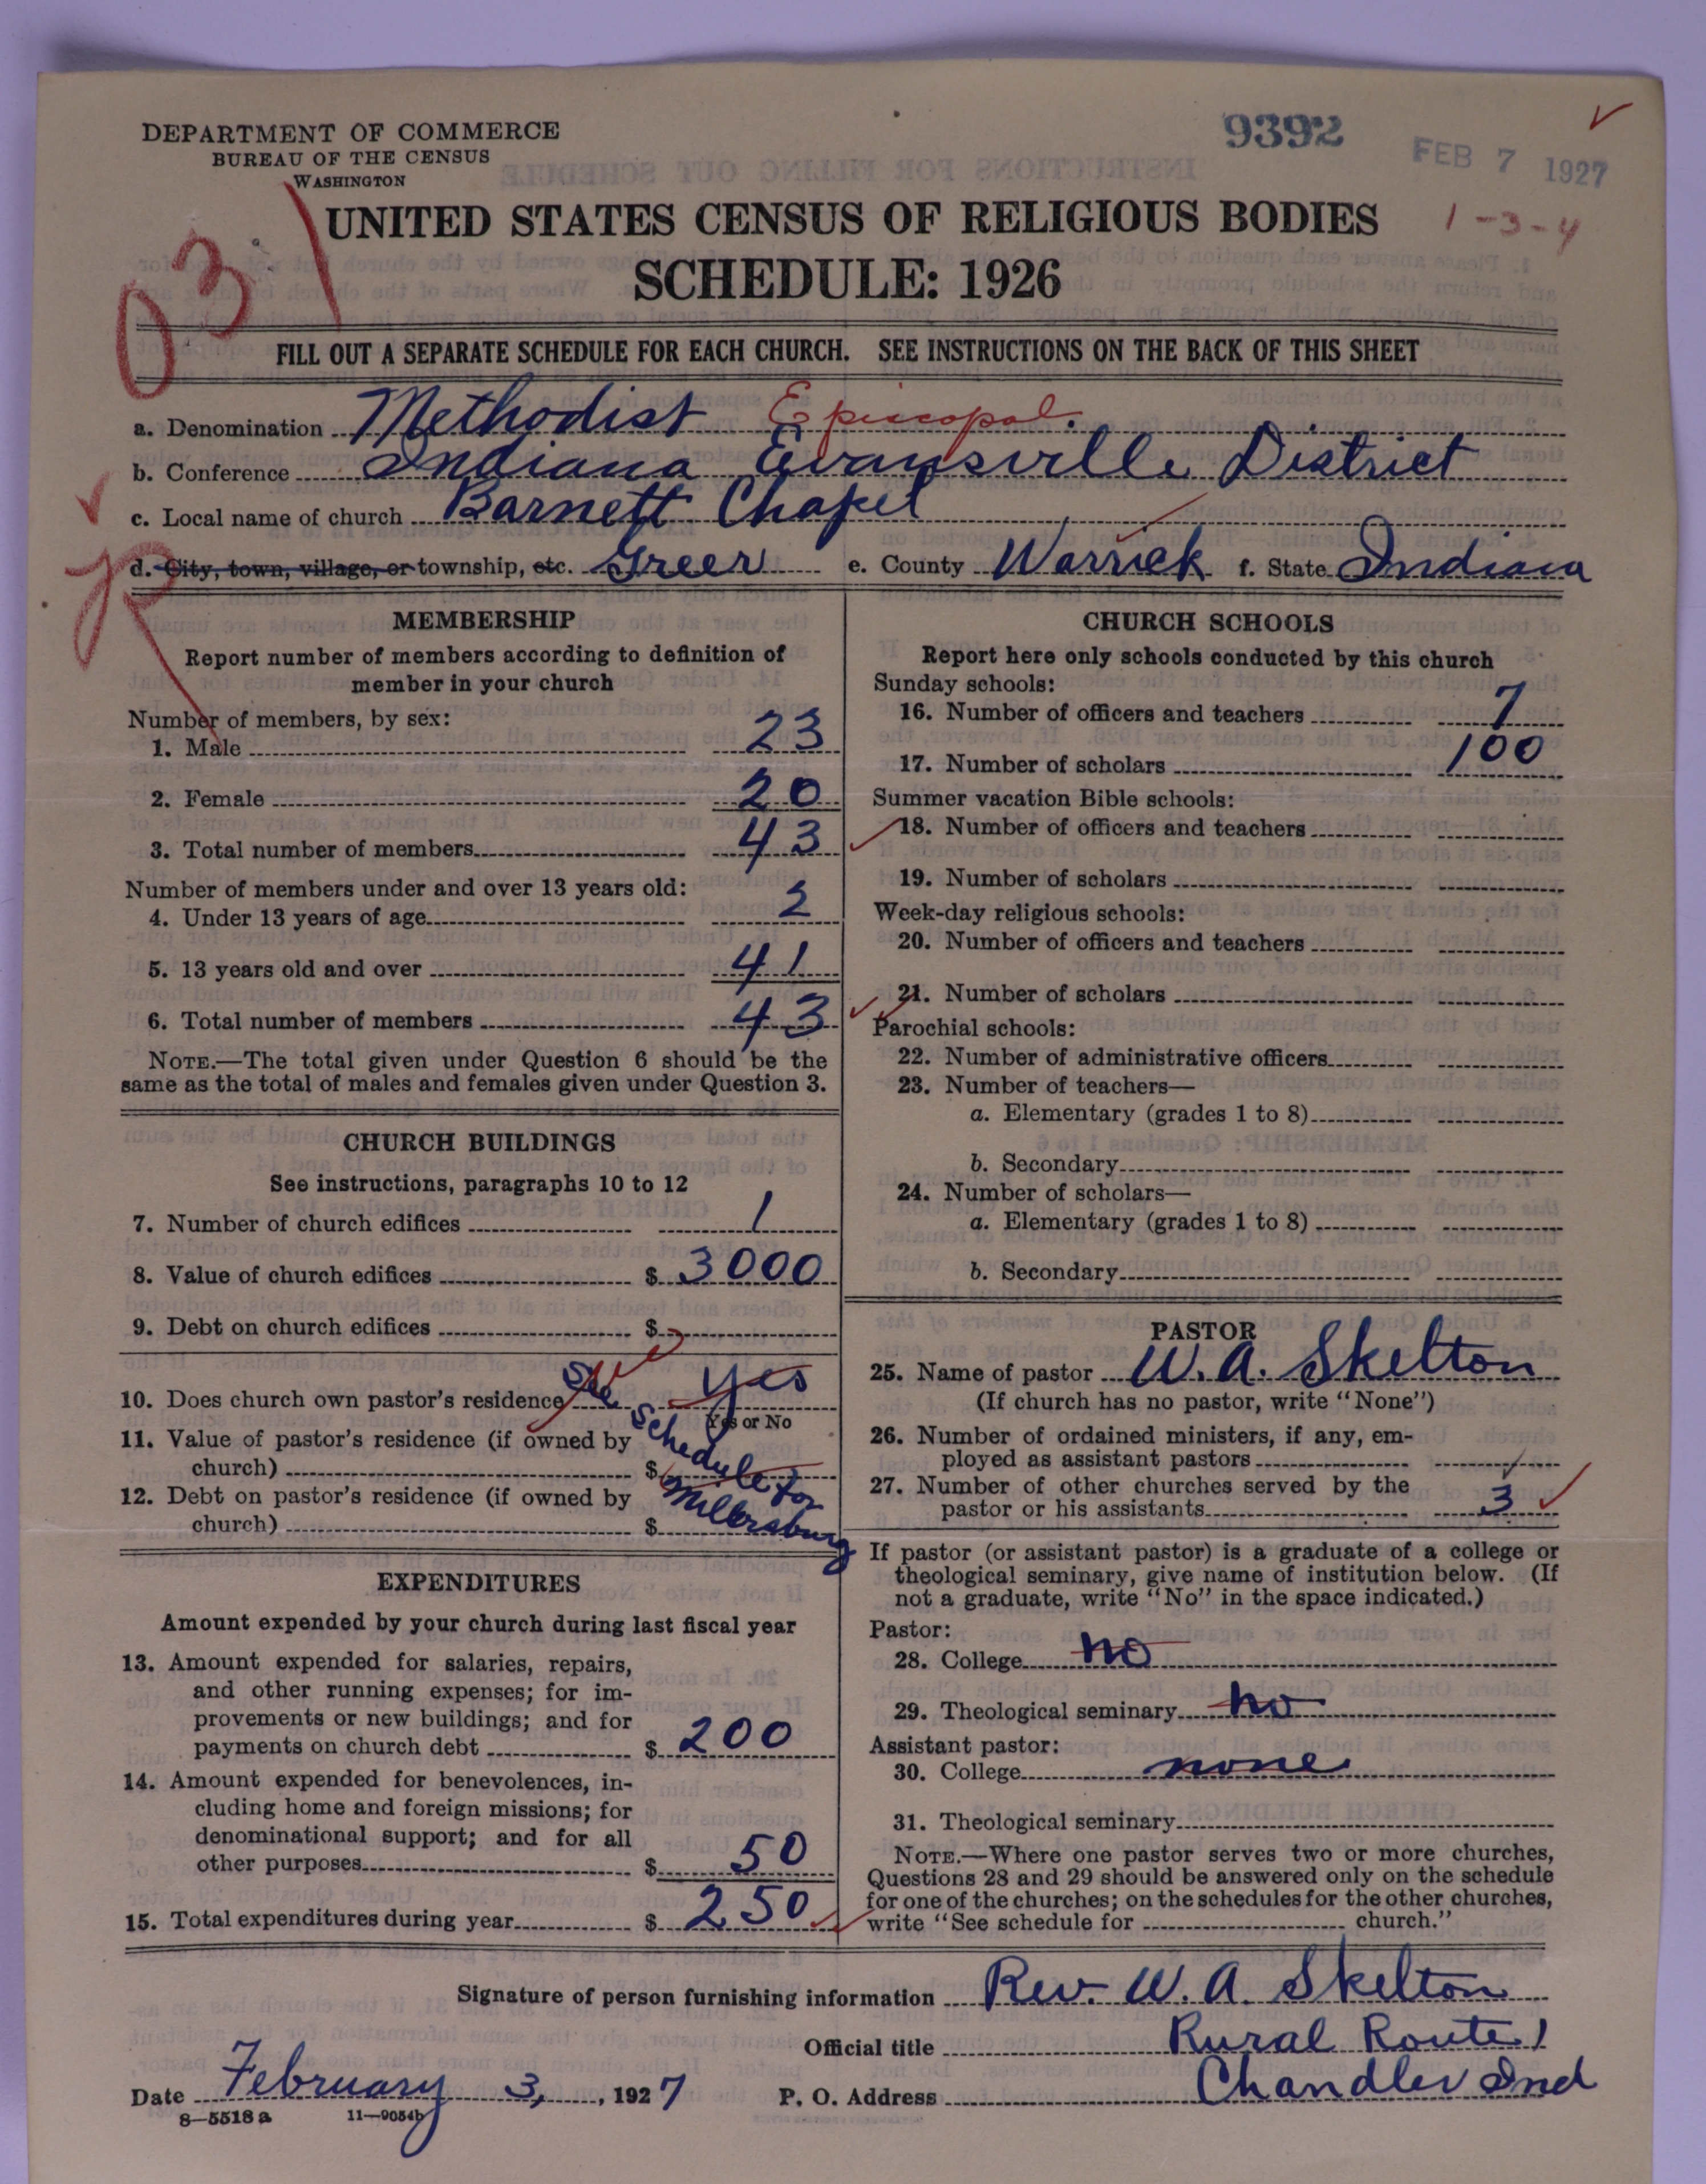 DEPARTMENT OF COMMERCE
BUREAU OF THE CENSUS
WASHINGTON
9392
FEB 7 1927
UNITED STATES CENSUS OF RELIGIOUS BODIES
1-3-4
SCHEDULE: 1926
031
FILL OUT A SEPARATE SCHEDULE FOR EACH CHURCH. SEE INSTRUCTIONS ON THE BACK OF THIS SHEET
a. Denomination Methodist Episcopal.
b. Conference Indiana Evansville District
c. Local name of church Barnett Chapel
d. City, town, village, or township, etc. Greer e. County Warrick f. State Indiana
MEMBERSHIP
Report number of members according to definition of
member in your church
Number of members, by sex:
1. Male 23
2. Female 20
3. Total number of members 43
Number of members under and over 13 years old:
4. Under 13 years of age 2
5. 13 years old and over 41
6. Total number of members 43
NOTE.—The total given under Question 6 should be the
same as the total of males and females given under Question 3.
CHURCH BUILDINGS
See instructions, paragraphs 10 to 12
7. Number of church edifices 1
8. Value of church edifices $ 3000
9. Debt on church edifices $
10. Does church own pastor's residence yes
Yes or No
See Schedule for Millersburg
11. Value of pastor's residence (if owned by
church) $
12. Debt on pastor's residence (if owned by
church) $
EXPENDITURES
Amount expended by your church during last fiscal year
13. Amount expended for salaries, repairs,
and other running expenses; for im-
provements or new buildings; and for
payments on church debt $ 200
14. Amount expended for benevolences, in-
cluding home and foreign missions; for
denominational support; and for all
other purposes $ 50
15. Total expenditures during year $ 250
CHURCH SCHOOLS
Report here only schools conducted by this church
Sunday schools:
16. Number of officers and teachers 7
17. Number of scholars 100
Summer vacation Bible schools:
18. Number of officers and teachers
19. Number of scholars
Week-day religious schools:
20. Number of officers and teachers
21. Number of scholars
Parochial schools:
22. Number of administrative officers
23. Number of teachers—
a. Elementary (grades 1 to 8)
b. Secondary
24. Number of scholars—
a. Elementary (grades 1 to 8)
b. Secondary
PASTOR
25. Name of pastor W. A. Skelton
(If church has no pastor, write "None")
26. Number of ordained ministers, if any, em-
ployed as assistant pastors
27. Number of other churches served by the
pastor or his assistants 3
If pastor (or assistant pastor) is a graduate of a college or
theological seminary, give name of institution below. (If
not a graduate, write "No" in the space indicated.)
Pastor:
28. College no
29. Theological seminary no
Assistant pastor:
30. College none
31. Theological seminary
NOTE.—Where one pastor serves two or more churches,
Questions 28 and 29 should be answered only on the schedule
for one of the churches; on the schedules for the other churches,
write "See schedule for church."
Signature of person furnishing information Rev. W. A. Skelton
Official title Rural Route 1
Date February 3, 1927 P. O. Address Chandler Ind
8—5518 a 11—9054b